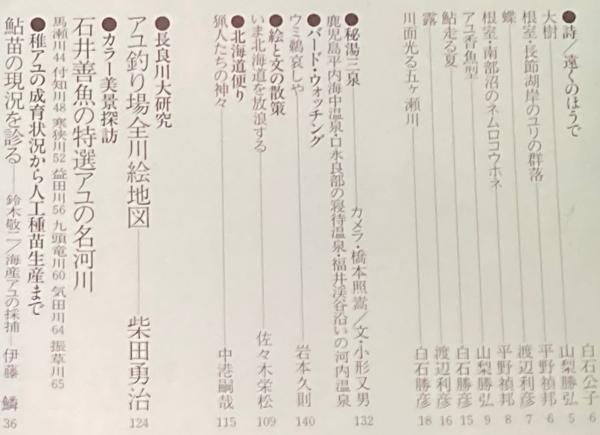 ●詩/遠くのほうで 白石公子 6
大樹 山梨勝弘 5
根室・長節湖岸のユリの群落 平野禎邦 6
蝶 渡辺利彦 7
根室・南部沼のネムロコウホネ 平野禎邦 8
アユ香魚型 山梨勝弘 9
鮎走る夏 白石勝彦 15
露 渡辺利彦 16
川面光る五ヶ瀬川 白石勝彦 18
●秘湯三泉 カメラ・橋本照嵩/文・小形又男 132
鹿児島平内海中温泉・口永良部の寝待温泉・福井渓谷沿いの河内温泉
●バード・ウォッチング
ウミ鵜哀しや 岩本久則 140
●絵と文の散策
いま北海道を放浪する 佐々木栄松 109
●北海道便り
猟人たちの神々 中港嗣哉 115
●長良川大研究
アユ釣り場全川絵地図 柴田勇治 124
●カラー美景探訪
石井善魚の特選アユの名河川
馬瀬川44 付知川48 寒狭川52 益田川56 九頭竜川60 気田川64 振草川65
●稚アユの成育状況から人工種苗生産まで
鮎苗の現況を診る 鈴木敬二/海産アユの採捕 伊藤 鱗 36